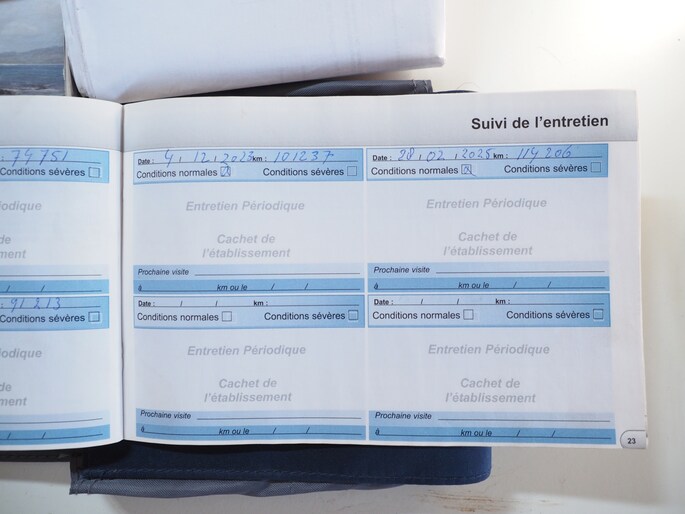 Suivi de l'entretien
: 74751
Conditions sévères
Date : 4 , 12 , 2023 km : 101237
Conditions normales
Conditions sévères
Date : 28 , 02 , 2025 km : 114206
Conditions normales
Conditions sévères
iodique
de
ment
Entretien Périodique
Cachet de
l'établissement
Entretien Périodique
Cachet de
l'établissement
Prochaine visite
à km ou le / /
Prochaine visite
à km ou le / /
/ /
: 91213
Conditions sévères
Date : / / km :
Conditions normales
Conditions sévères
Date : / / km :
Conditions normales
Conditions sévères
iodique
de
ment
Entretien Périodique
Cachet de
l'établissement
Entretien Périodique
Cachet de
l'établissement
Prochaine visite
à km ou le / /
Prochaine visite
à km ou le / /
/ /
23